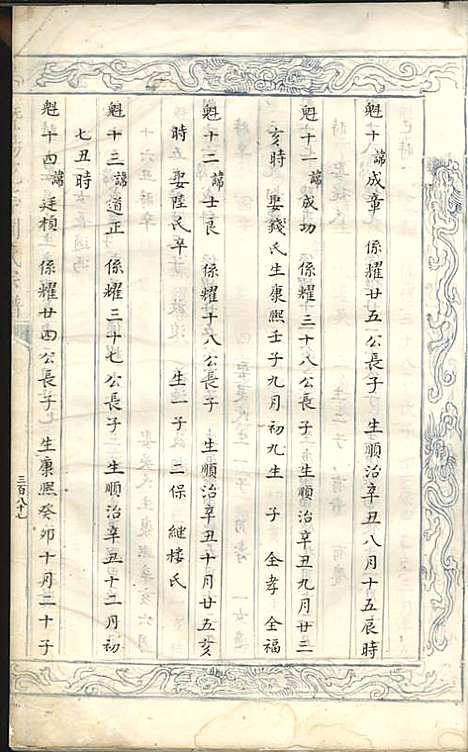 魁十 諱成章 係耀廿五公長子 生順治辛丑八月十五辰時
魁十一 諱成功 係耀三十八公長子 生順治辛丑九月廿三
亥時 娶錢氏生康熙壬子九月初九 生 子 全孝 全福
魁十二 諱士良 係耀十八公長子 生順治辛丑十月廿五亥
時 娶陸氏卒 生一子 二保 継楼氏
魁十三 諱道正 係耀三十七公長子 生順治辛丑十二月初
七丑時
魁十四 諱廷楨 係耀廿四公長子 生康熙癸卯十月二十子
三百八十七